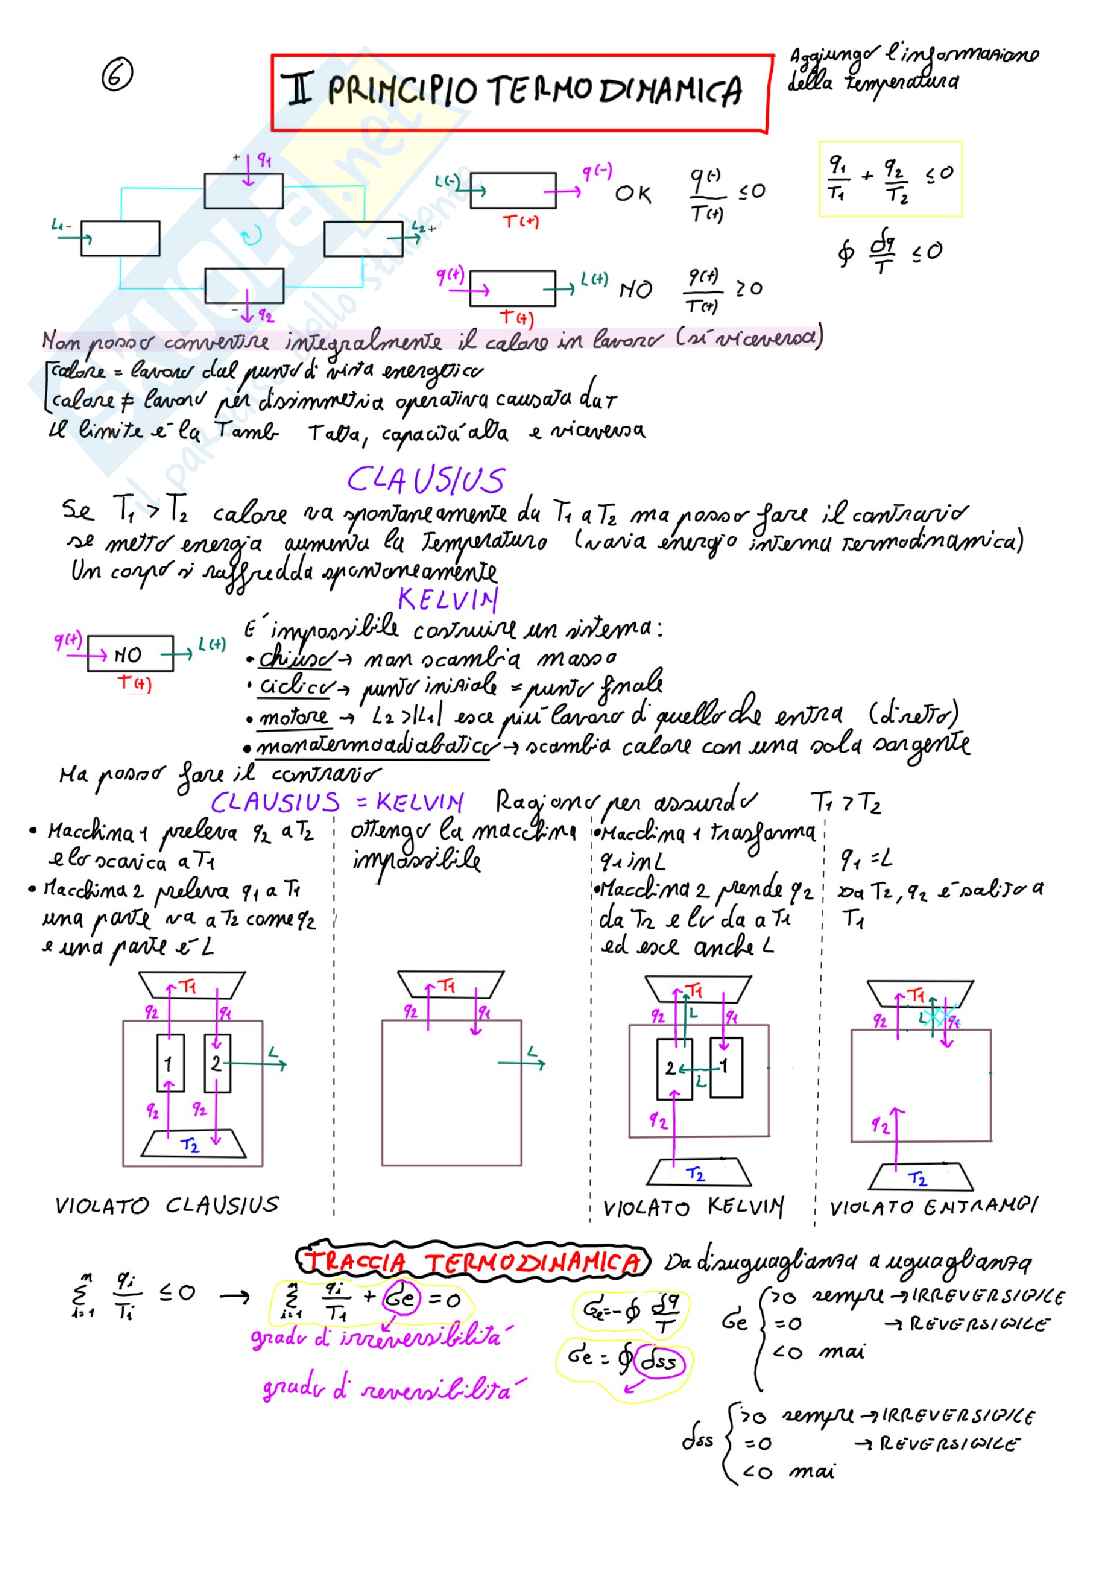 6
II PRINCIPIO TERMODINAMICA
Aggiungo l'informazione
della temperatura
+ q1
L1-
L2+
- q2
L(-) q(-) OK q(-)/T(+) ≤0
T(+)
q(+) L(+) NO q(+)/T(+) ≥0
T(+)
q1/T1 + q2/T2 ≤0
∮ δq/T ≤0
Non posso convertire integralmente il calore in lavoro (sì viceversa)
calore = lavoro dal punto di vista energetico
calore ≠ lavoro per dissimmetria operativa causata da T
Il limite è la Tamb T alta, capacità alta e viceversa
CLAUSIUS
Se T1 > T2 calore va spontaneamente da T1 a T2 ma posso fare il contrario
se metto energia aumenta la temperatura (varia energia interna termodinamica)
Un corpo si raffredda spontaneamente
KELVIN
q(+) NO L(+)
T(+)
E' impossibile costruire un sistema:
• chiuso → non scambia massa
• ciclico → punto iniziale = punto finale
• motore → L2 >|L1| esce più lavoro di quello che entra (diretto)
• monotermoadiabatico → scambia calore con una sola sorgente
Ma posso fare il contrario
CLAUSIUS = KELVIN Ragiono per assurdo T1 > T2
• Macchina 1 preleva q2 a T2
e lo scarica a T1
• Macchina 2 preleva q1 a T1
una parte va a T2 come q2
e una parte è L
ottengo la macchina
impossibile
• Macchina 1 trasforma
q1 in L
• Macchina 2 prende q2
da T2 e lo da a T1
ed esce anche L
q1 = L
Da T2, q2 è salito a
T1
T1
q2 q1
1 2 L
q2 q2
T2
VIOLATO CLAUSIUS
T1
q2 q1
L
T1
q2 L q1
2 L 1
q2
T2
VIOLATO KELVIN
T1
q2 L q1
q2
T2
VIOLATO ENTRAMBI
TRACCIA TERMODINAMICA Da disuguaglianza a uguaglianza
n∑i=1 qi/Ti ≤ 0 → n∑i=1 qi/Ti + σe = 0
grado di irreversibilità
grado di reversibilità
σe = -∮ δq/T
σe = ∮ δss
σe { >0 sempre → IRREVERSIBILE
=0 → REVERSIBILE
<0 mai
δss { >0 sempre → IRREVERSIBILE
=0 → REVERSIBILE
<0 mai
SKUOLA.net
il paradiso dello studente